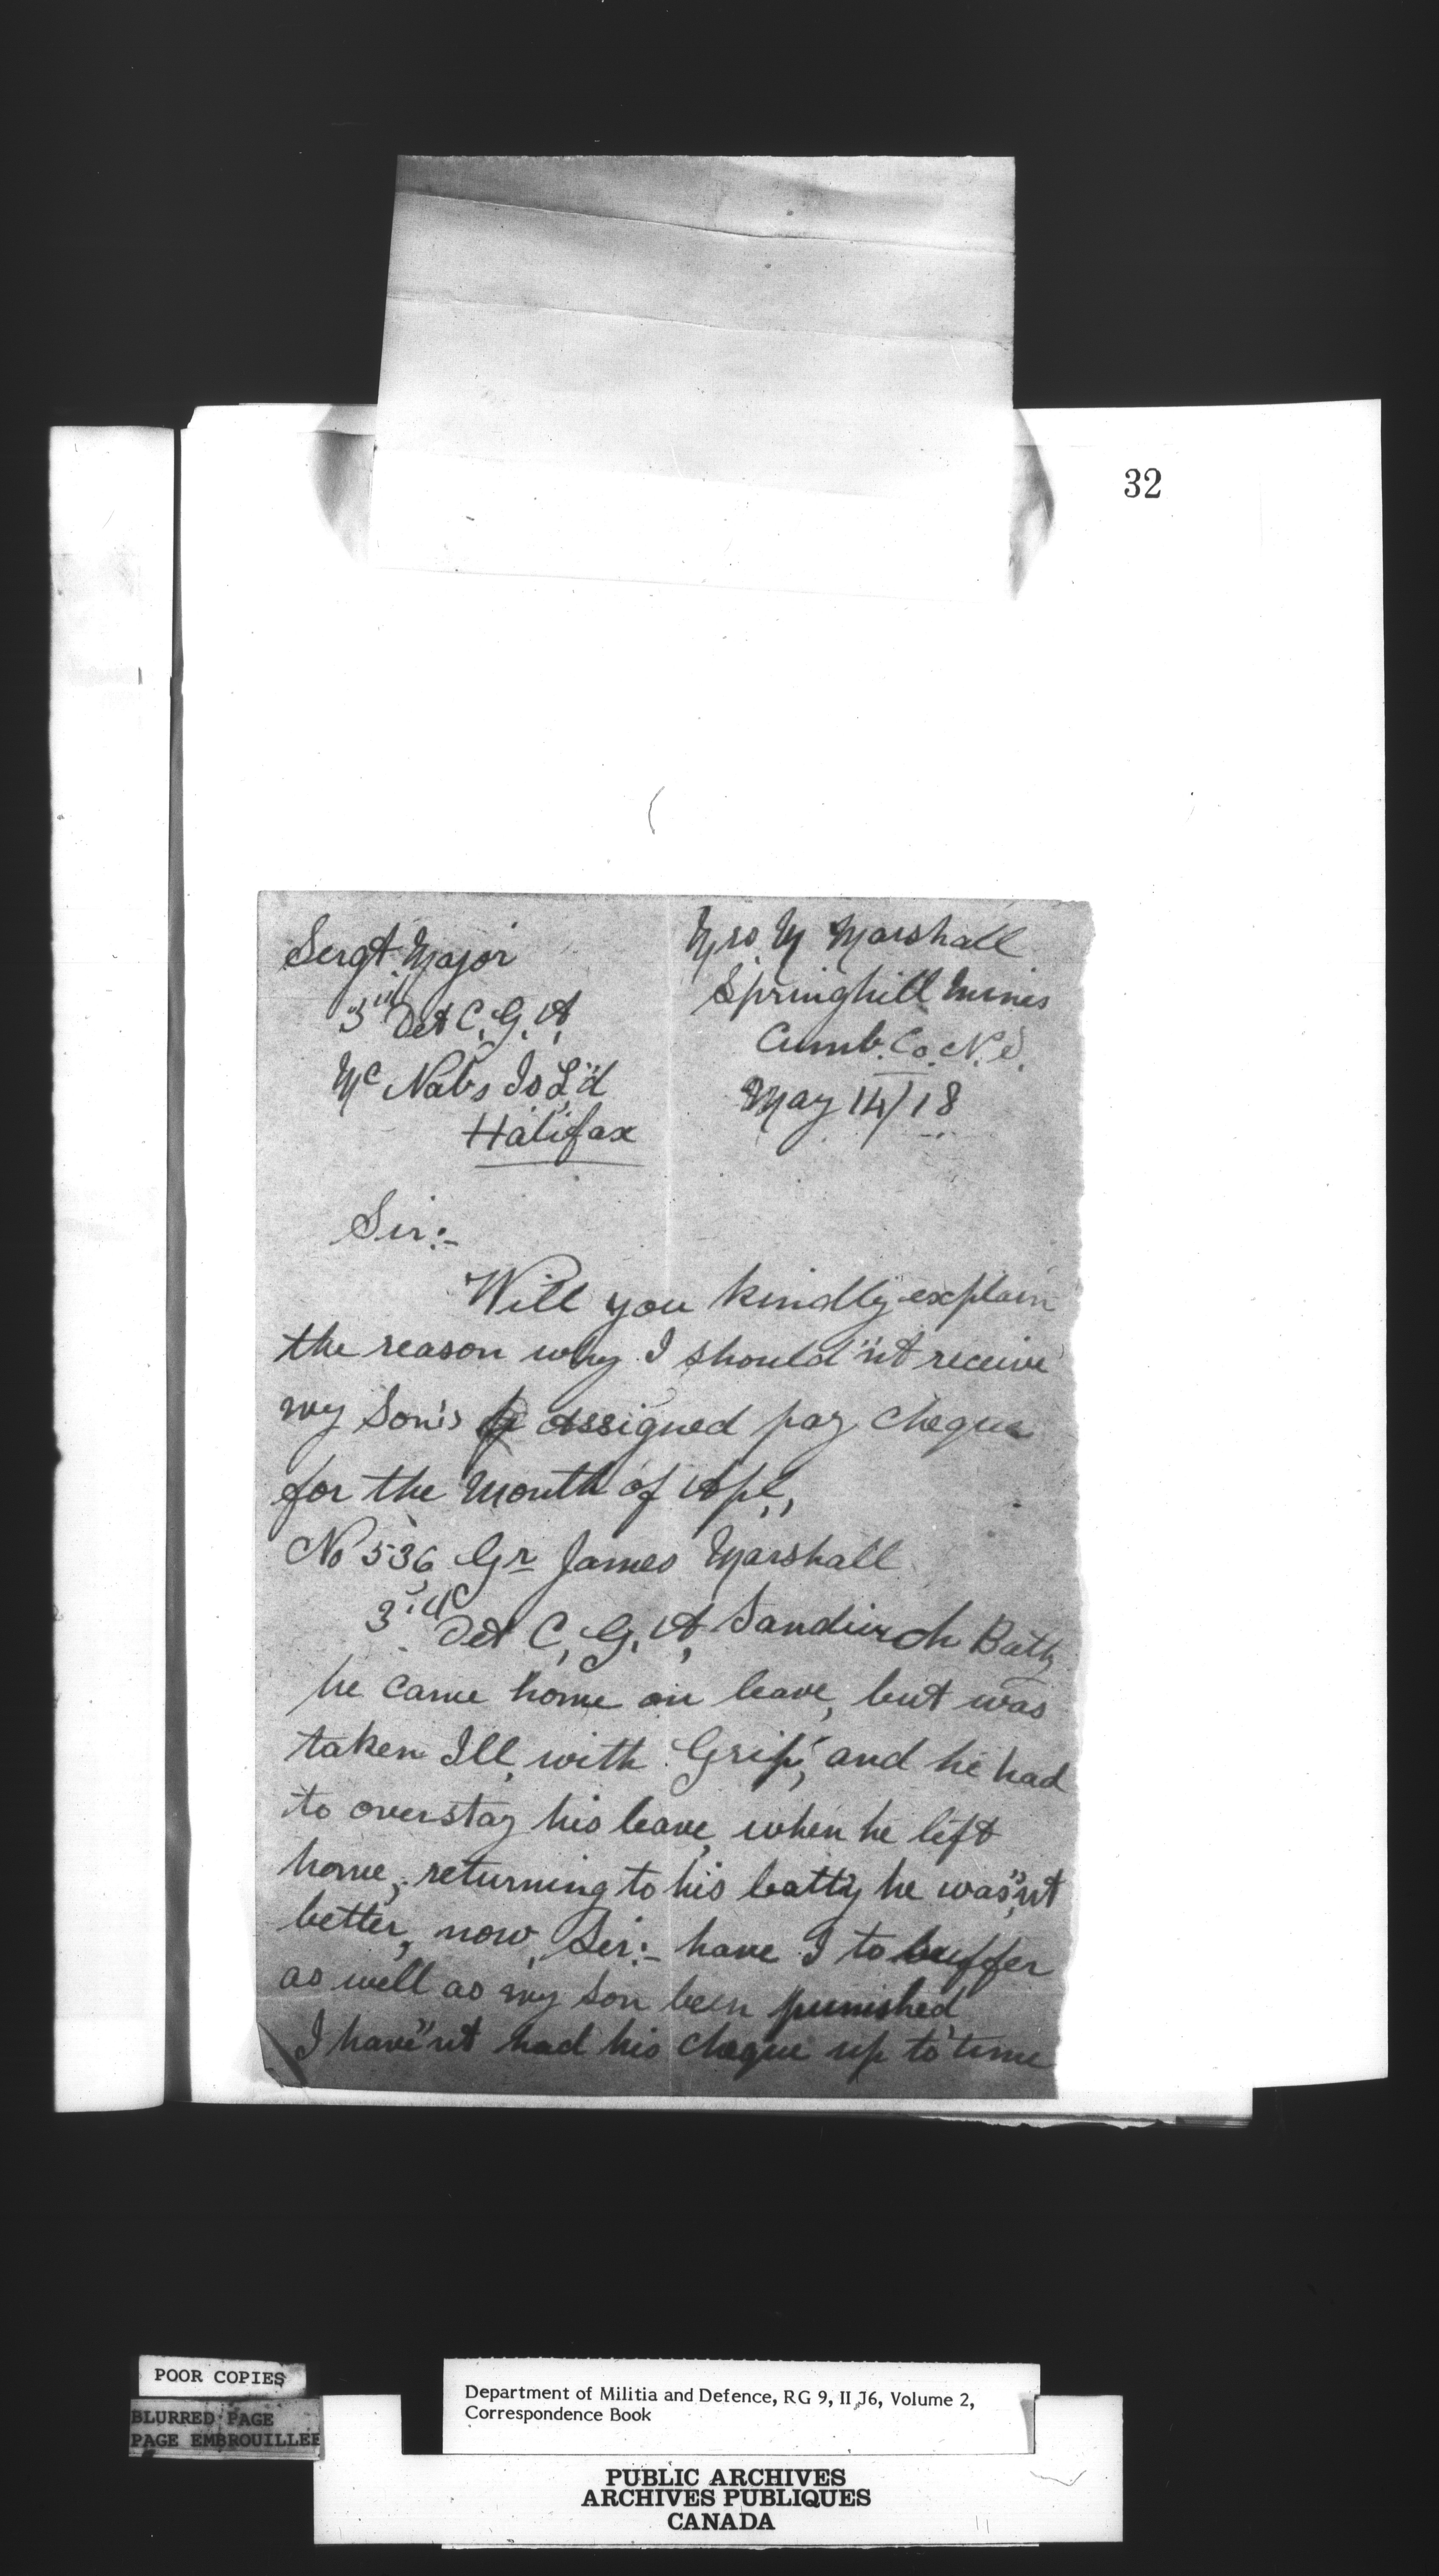 32
Sergt. Major
3rd Det C, G, A,
Mc Nabs Is L"d
Halifax
Mrs. M Marshall
Springhill Mines
Cumb. Co. N. S.
May 14/18
Sir:-
Will you kindly explain
the reason why I should"nt receive
my Son's assigned pay cheque
for the Month of Apl,
No 536 Gr James Marshall
3rd Det C, G, A, Sandwich Batty
he came home on leave, but was
taken Ill, with Grip, and he had
to overstay his leave, when he left
home, returning to his batty he was"nt
better, now, Sir:- have I to suffer
as well as my son been punished
I have"nt had his cheque up to time
POOR COPIES
BLURRED PAGE
PAGE EMBROUILLEE
Department of Militia and Defence, RG 9, II J6, Volume 2,
Correspondence Book
PUBLIC ARCHIVES
ARCHIVES PUBLIQUES
CANADA